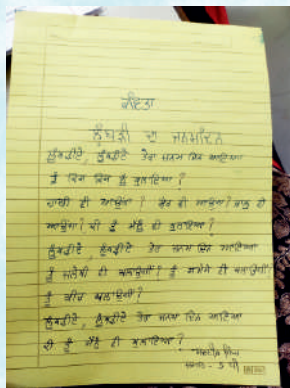 ਕਵਿਤਾ
ਲੂੰਬੜੀ ਦਾ ਜਨਮਦਿਨ
ਲੂੰਬੜੀਏ, ਲੂੰਬੜੀਏ ਤੇਰਾ ਜਨਮ ਦਿਨ ਆਇਆ
ਤੂੰ ਕਿਸ ਕਿਸ ਨੂੰ ਬੁਲਾਇਆ?
ਹਾਥੀ ਵੀ ਆਊਗਾ? ਸ਼ੇਰ ਵੀ ਆਊਗਾ? ਭਾਲੂ ਵੀ
ਆਊਗਾ? ਕੀ ਤੂੰ ਮੈਨੂੰ ਵੀ ਬੁਲਾਇਆ?
ਲੂੰਬੜੀਏ, ਲੂੰਬੜੀਏ ਤੇਰਾ ਜਨਮ ਦਿਨ ਆਇਆ
ਤੂੰ ਜਲੇਬੀ ਵੀ ਖਲਾਉਗੀ? ਤੂੰ ਸਮੋਸੇ ਵੀ ਖਲਾਉਗੀ?
ਤੂੰ ਖੀਰ ਖਲਾਉਗੀ?
ਲੂੰਬੜੀਏ, ਲੂੰਬੜੀਏ ਤੇਰਾ ਜਨਮ ਦਿਨ ਆਇਆ
ਕੀ ਤੂੰ ਮੈਨੂੰ ਵੀ ਬੁਲਾਇਆ?
ਸਿੰਘ
5 ਵੀਂ